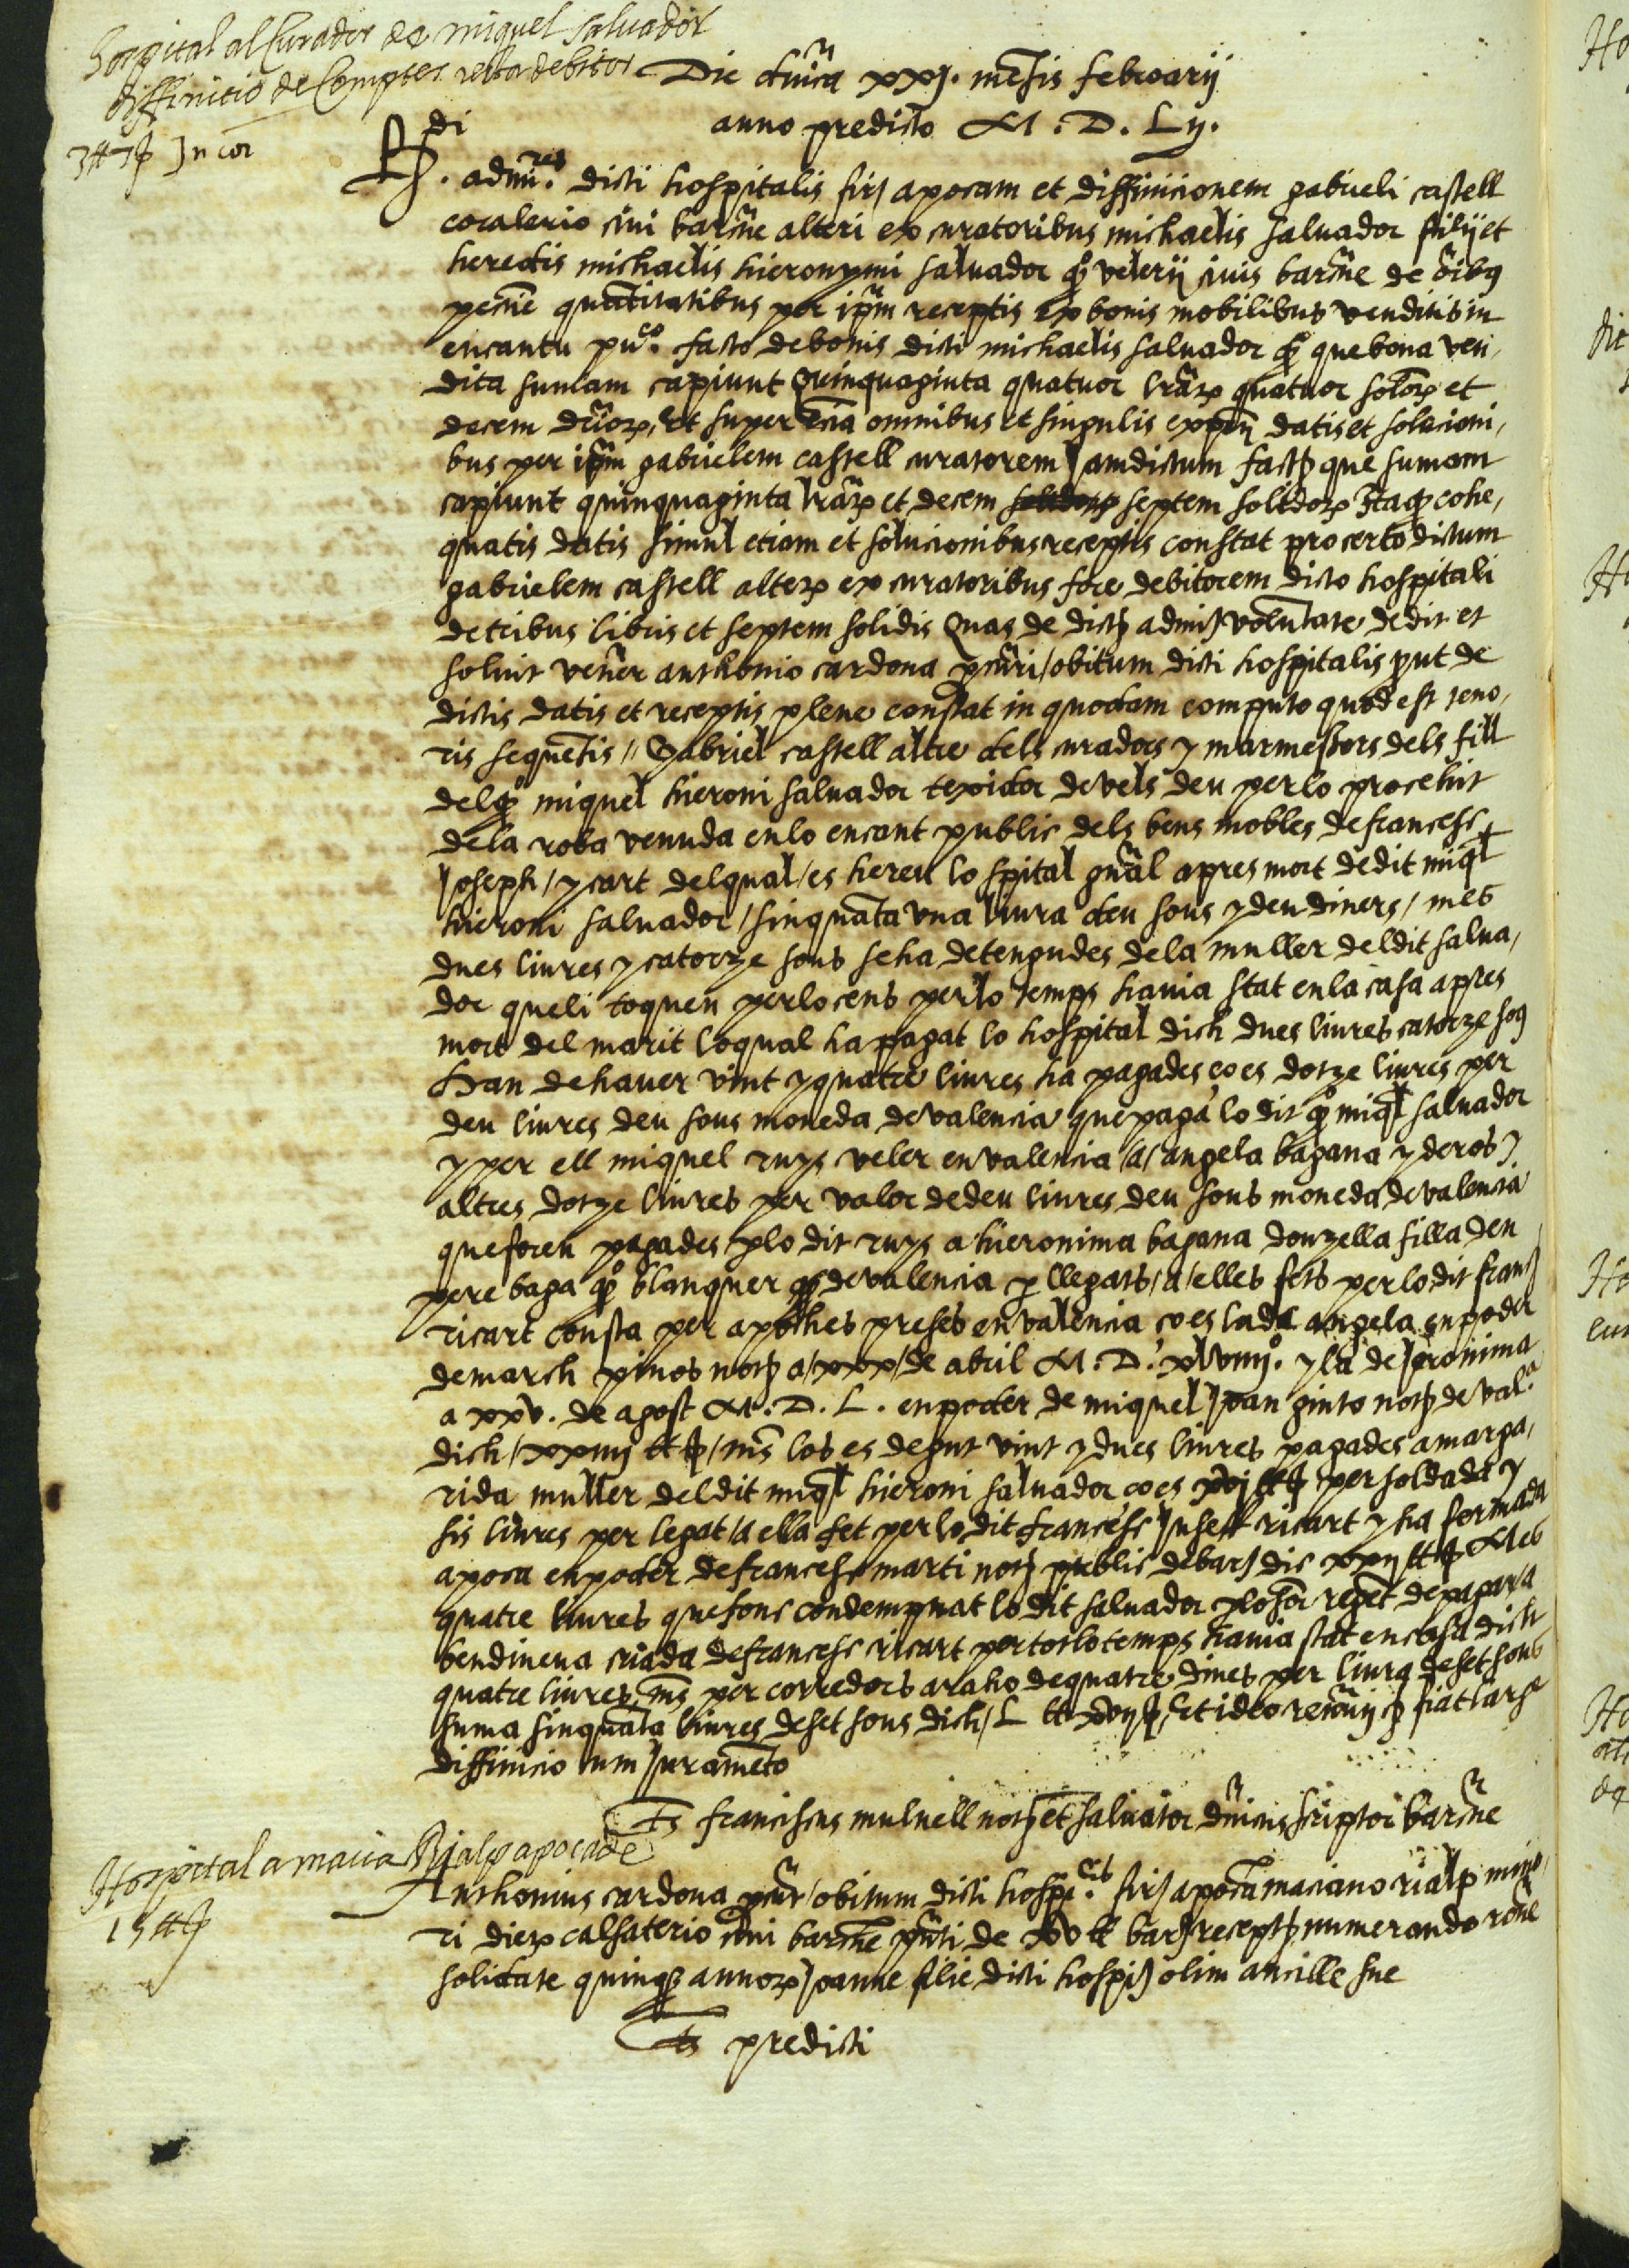 Hospital al Curador de miquel saluador
diffinitio de Comptes resta debitor
3 ₶ 7 ß Jn cor
Die dnica xxj. mensis februarij
anno predicto M. D. Lij.
Rdi
admres. dicti hospitalis firt apocam et diffinicionem gabrieli castell
coralerio ciui barcne alteri ex curatoribus michaelis saluador filij et
heredis michaelis hieronymi saluador qo velerij ciuis barcne de oibus
pecunie quantitatibus per ipm receptis ex bonis mobilibus venditis in
encantu puco. facto de bonis dicti michaelis saluador qo que bona ven,
dita sumam capiunt Quinquaginta quatuor librarz quatuor solidorz et
decem denorz. Et super etia omnibus et singulis expen datis et solucioni,
bus per ipm gabrielem castell curatorem jamdictum fact que sumam
capiunt quinquaginta librarz et decem solidorz septem solidorz Itaqz cohe,
quatis datis simul etiam et solucionibus receptis constat pro certo dictum
gabrielem castell alterz ex curatoribus fore debitorem dicto hospitali
de tribus libris et septem solidis Quas de dict admi voluntate dedit et
soluit vener anthonio cardona pcuri / obituum dicti hospitalis put de
dictis datis et receptis plene constat in quodam computo quod est teno,
ris sequentis // Gabriel castell altre dels curadors y marmessors dels fill
del qo miquel hieroni saluador texidor de vels deu per lo procehit
dela roba venuda en lo encant public dels bens mobles de francesc
Joseph / ycart del qual / es hereu lo spital gnal apres mort de dit miql
hieroni saluador / sinquanta vna liura deu sous y deu diners / mes
dues liures y catorze sous se ha detengudes dela muller del dit salua,
dor que li toquen per lo cens per lo temps hauia stat en la casa apres
mort del marit lo qual ha pagat lo hospital dich dues liures catorze sos
Han de hauer vint y quatre liures ha pagades ço es dotze liures per
deu liures deu sous moneda de valencia que paga lo dit qo miql saluador
y per ell miquel ruys veler en valencia / a / angela bagana y de ros y
altres dotze liures per valor de deu liures deu sous moneda de valencia
que foren pagades plo dit ruys a hieronima bagana donzella filla den
pere baga qo blanquer qo de valencia p llegats / a / elles fets per lo dit franc
ricart consta per apoches preses en valencia ço es la de angela en poder
de march pinos not a / xxx / de abril M. D. xlviiijo. y la de Jeronima
a xxv. de agost M. D. L. en poder de miquel Joan ginto not de vala.
dich / xxiiij ₶ ß / mes los es degut vint y dues liures pagades a marga,
rida muller del dit miql hieroni saluador ço es xvj ₶ ß per soldada y
sis liures per legat / a ella fet per lo dit francesc Juseff ricart y ha fermada
apoca en poder de francesc marti not public de bar dic xxij ₶ ß Mes
quatre liures que fonc condempnat lo dit saluador plo sor reget de pagar a
bendinena criada de francesc ricart per tot lo temps hauia stat en casa dich
quatre liures. mes per corredors a raho de quatre dines per liura deset sous
suma sinquanta liures deset sous dich / L ₶ xvij ß. Et ideo renun fiat large
diffinicio cum Juramento
Ts franciscus mulnell not et saluator dnicus scriptor barcne
Hospital a macia Rialp apoca de
15 ₶ ß
Anthonius cardona pcur / obituum dicti hospilis. fir apoca maciano rialp mino,
ri dierz calsaterio ciui barcne pnti de xv ₶ bar recept numerando rone
solidate quinqz annorz Joanne filie dicti hospi olim ancille sue
Ts predicti